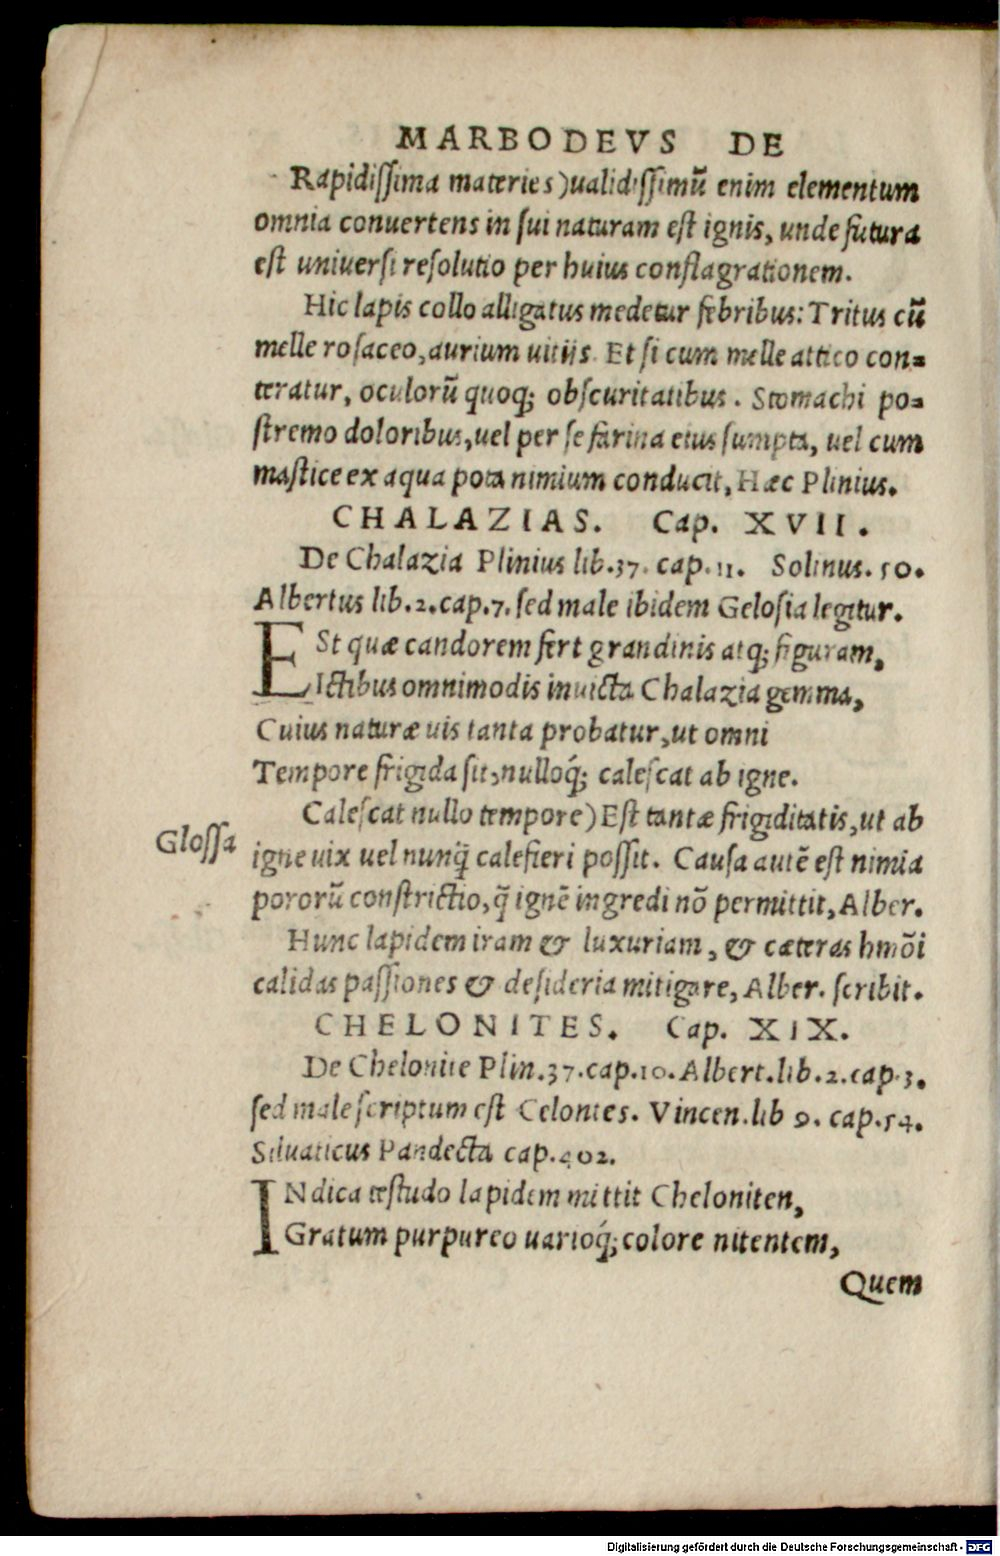 MARBODEVS DE
Rapidiſſima materies)ualidiſſimũ enim elementum
omnia conuertens in ſui naturam eſt ignis, unde futura
eſt uniuerſi reſolutio per huius conflagrationem.
Hic lapis collo alligatus medetur febribus: Tritus cũ
melle roſaceo, aurium uitijs. Et ſi cum melle attico con=
teratur, oculorũ quoq; obſcuritatibus. Stomachi po=
ſtremo doloribus, uel per ſe farina eius ſumpta, uel cum
maſtice ex aqua pota nimium conducit, Hæc Plinius.
CHALAZIAS. Cap. XVII.
De Chalazia Plinius lib.37. cap.11. Solinus.50.
Albertus lib.2.cap.7. ſed male ibidem Geloſia legitur.
ESt quæ candorem fert grandinis atq; figuram,
Ictibus omnimodis inuicta Chalazia gemma,
Cuius naturæ uis tanta probatur, ut omni
Tempore frigida ſit, nulloq́; caleſcat ab igne.
Caleſcat nullo tempore) Eſt tantæ frigiditatis, ut ab
Gloſſa
igne uix uel nunq̃ calefieri poſſit. Cauſa autẽ eſt nimia
pororũ conſtrictio, q̃ ignẽ ingredi nõ permittit, Alber.
Hunc lapidem iram & luxuriam, & cæteras hmõi
calidas paſſiones & deſideria mitigare, Alber. ſcribit.
CHELONITES. Cap. XIX.
De Chelonite Plin.37.cap.10. Albert.lib.2.cap.3.
ſed male ſcriptum eſt Celontes. Vincen.lib 9. cap.54.
Siluaticus Pandecta cap.402.
INdica teſtudo lapidem mittit Cheloniten,
Gratum purpureo uarioq́; colore nitentem,
Quem
Digitalisierung gefördert durch die Deutsche Forschungsgemeinschaft - DFG